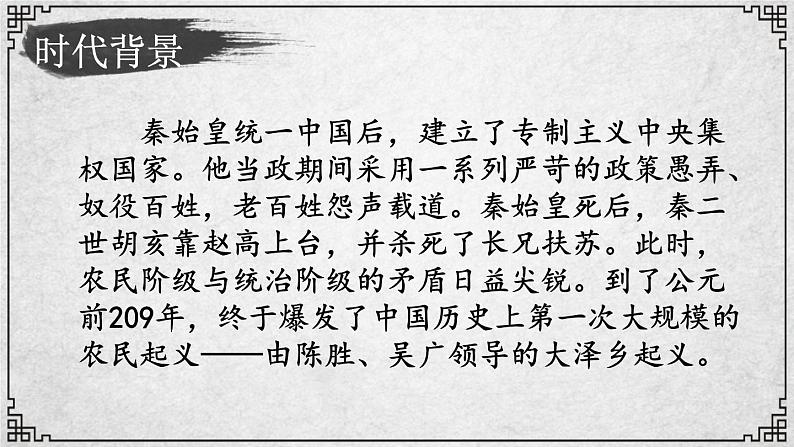 时代背景
秦始皇统一中国后，建立了专制主义中央集
权国家。他当政期间采用一系列严苛的政策愚弄、
奴役百姓，老百姓怨声载道。秦始皇死后，秦二
世胡亥靠赵高上台，并杀死了长兄扶苏。此时，
农民阶级与统治阶级的矛盾日益尖锐。到了公元
前209年，终于爆发了中国历史上第一次大规模的
农民起义——由陈胜、吴广领导的大泽乡起义。